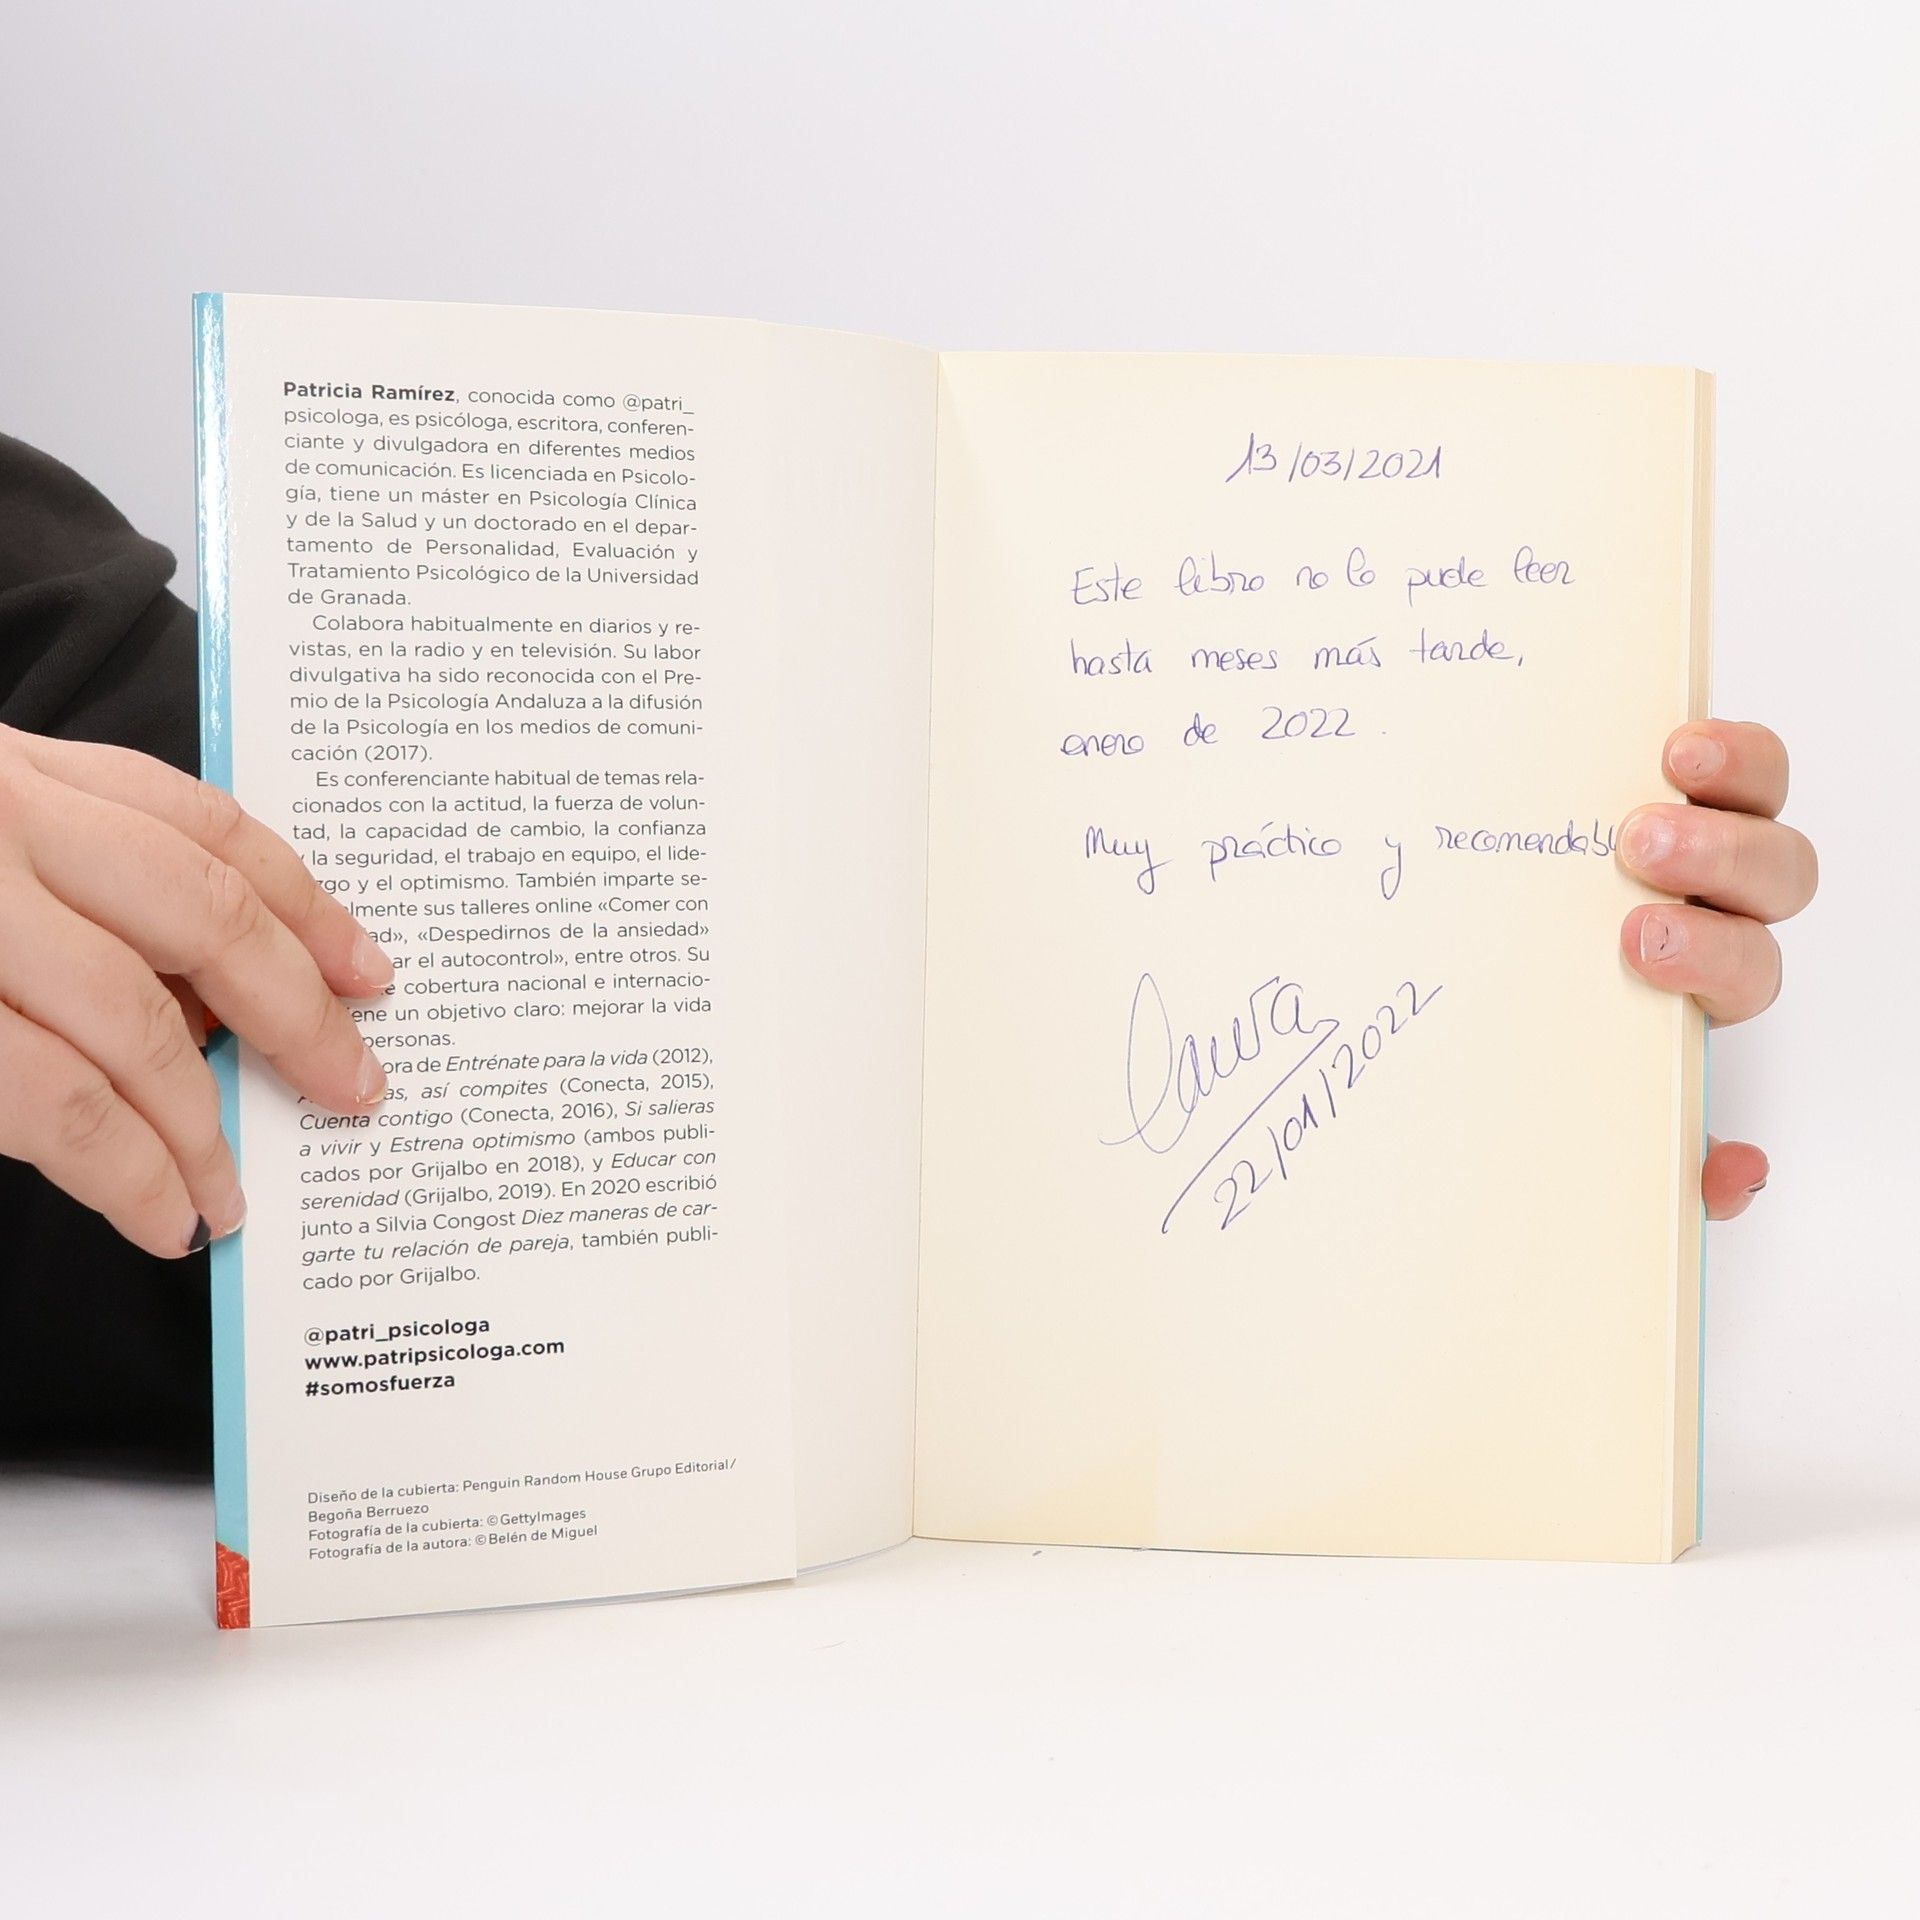 Patricia Ramírez, conocida como @patri_
psicologa, es psicóloga, escritora, conferen-
ciante y divulgadora en diferentes medios
de comunicación. Es licenciada en Psicolo-
gía, tiene un máster en Psicología Clínica
y de la Salud y un doctorado en el depar-
tamento de Personalidad, Evaluación y
Tratamiento Psicológico de la Universidad
de Granada.
Colabora habitualmente en diarios y re-
vistas, en la radio y en televisión. Su labor
divulgativa ha sido reconocida con el Pre-
mio de la Psicología Andaluza a la difusión
de la Psicología en los medios de comuni-
cación (2017).
Es conferenciante habitual de temas rela-
cionados con la actitud, la fuerza de volun-
tad, la capacidad de cambio, la confianza
la seguridad, el trabajo en equipo, el lide-
y el optimismo. También imparte se-
sus talleres online «Comer con
«Despedirnos de la ansiedad»
el autocontrol», entre otros. Su
cobertura nacional e internacio-
un objetivo claro: mejorar la vida
personas.
de Entrénate para la vida (2012),
así compites (Conecta, 2015),
Cuenta contigo (Conecta, 2016), Si salieras
a vivir y Estrena optimismo (ambos publi-
cados por Grijalbo en 2018), y Educar con
serenidad (Grijalbo, 2019). En 2020 escribió
junto a Silvia Congost Diez maneras de car-
garte tu relación de pareja, también publi-
cado por Grijalbo.
@patri_psicologa
www.patripsicologa.com
#somosfuerza
Diseño de la cubierta: Penguin Random House Grupo Editorial/
Begoña Berruezo
Fotografía de la cubierta: ©GettyImages
Fotografía de la autora: ©Belén de Miguel
13/03/2021
Este libro no lo pude leer
hasta meses más tarde,
enero de 2022.
Muy práctico y
Laura
22/01/2022